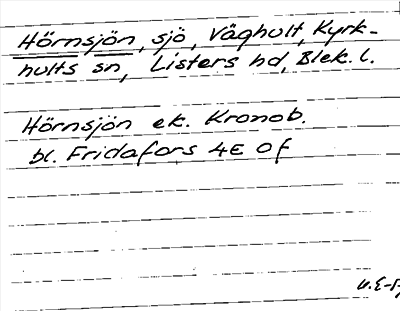 Hörnsjön, sjö, Väghult, Kyrk-
hults sn, Listers hd, Blek. l.
Hörnsjön ek. Kronob.
bl. Fridafors 4E 0f